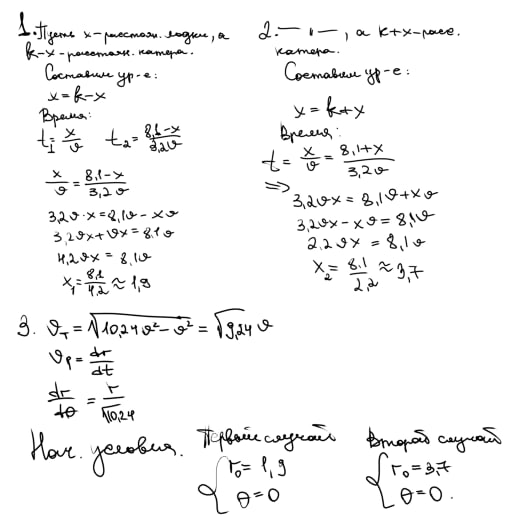 1. Пусть x-расстоян. лодки, а
k-x-расстоян. катера.
Составим ур-е:
x=k-x
Время:
t₁=x/v t₂=8,1-x/3,2v
x/v=8,1-x/3,2v
3,2v·x=8,1v-xv
3,2vx+vx=8.1v
4,2vx=8,1v
x₁=8,1/4,2≈1,9
2. — " —, а k+x-расс.
катера.
Составим ур-е:
x=k+x
Время:
t=x/v=8,1+x/3,2v
=>
3,2vx=8,1v+xv
3,2vx-xv=8,1v
2.2vx=8,1v
x₂=8.1/2,2≈3,7
3. v_т=√10,24v²-v²=√9,24v
v_р=dr/dt
dr/dθ=r/√10,24
Нач. условия.
Первый случай
{r₀=1,9
θ=0
Второй случай
{r₀=3,7
θ=0.